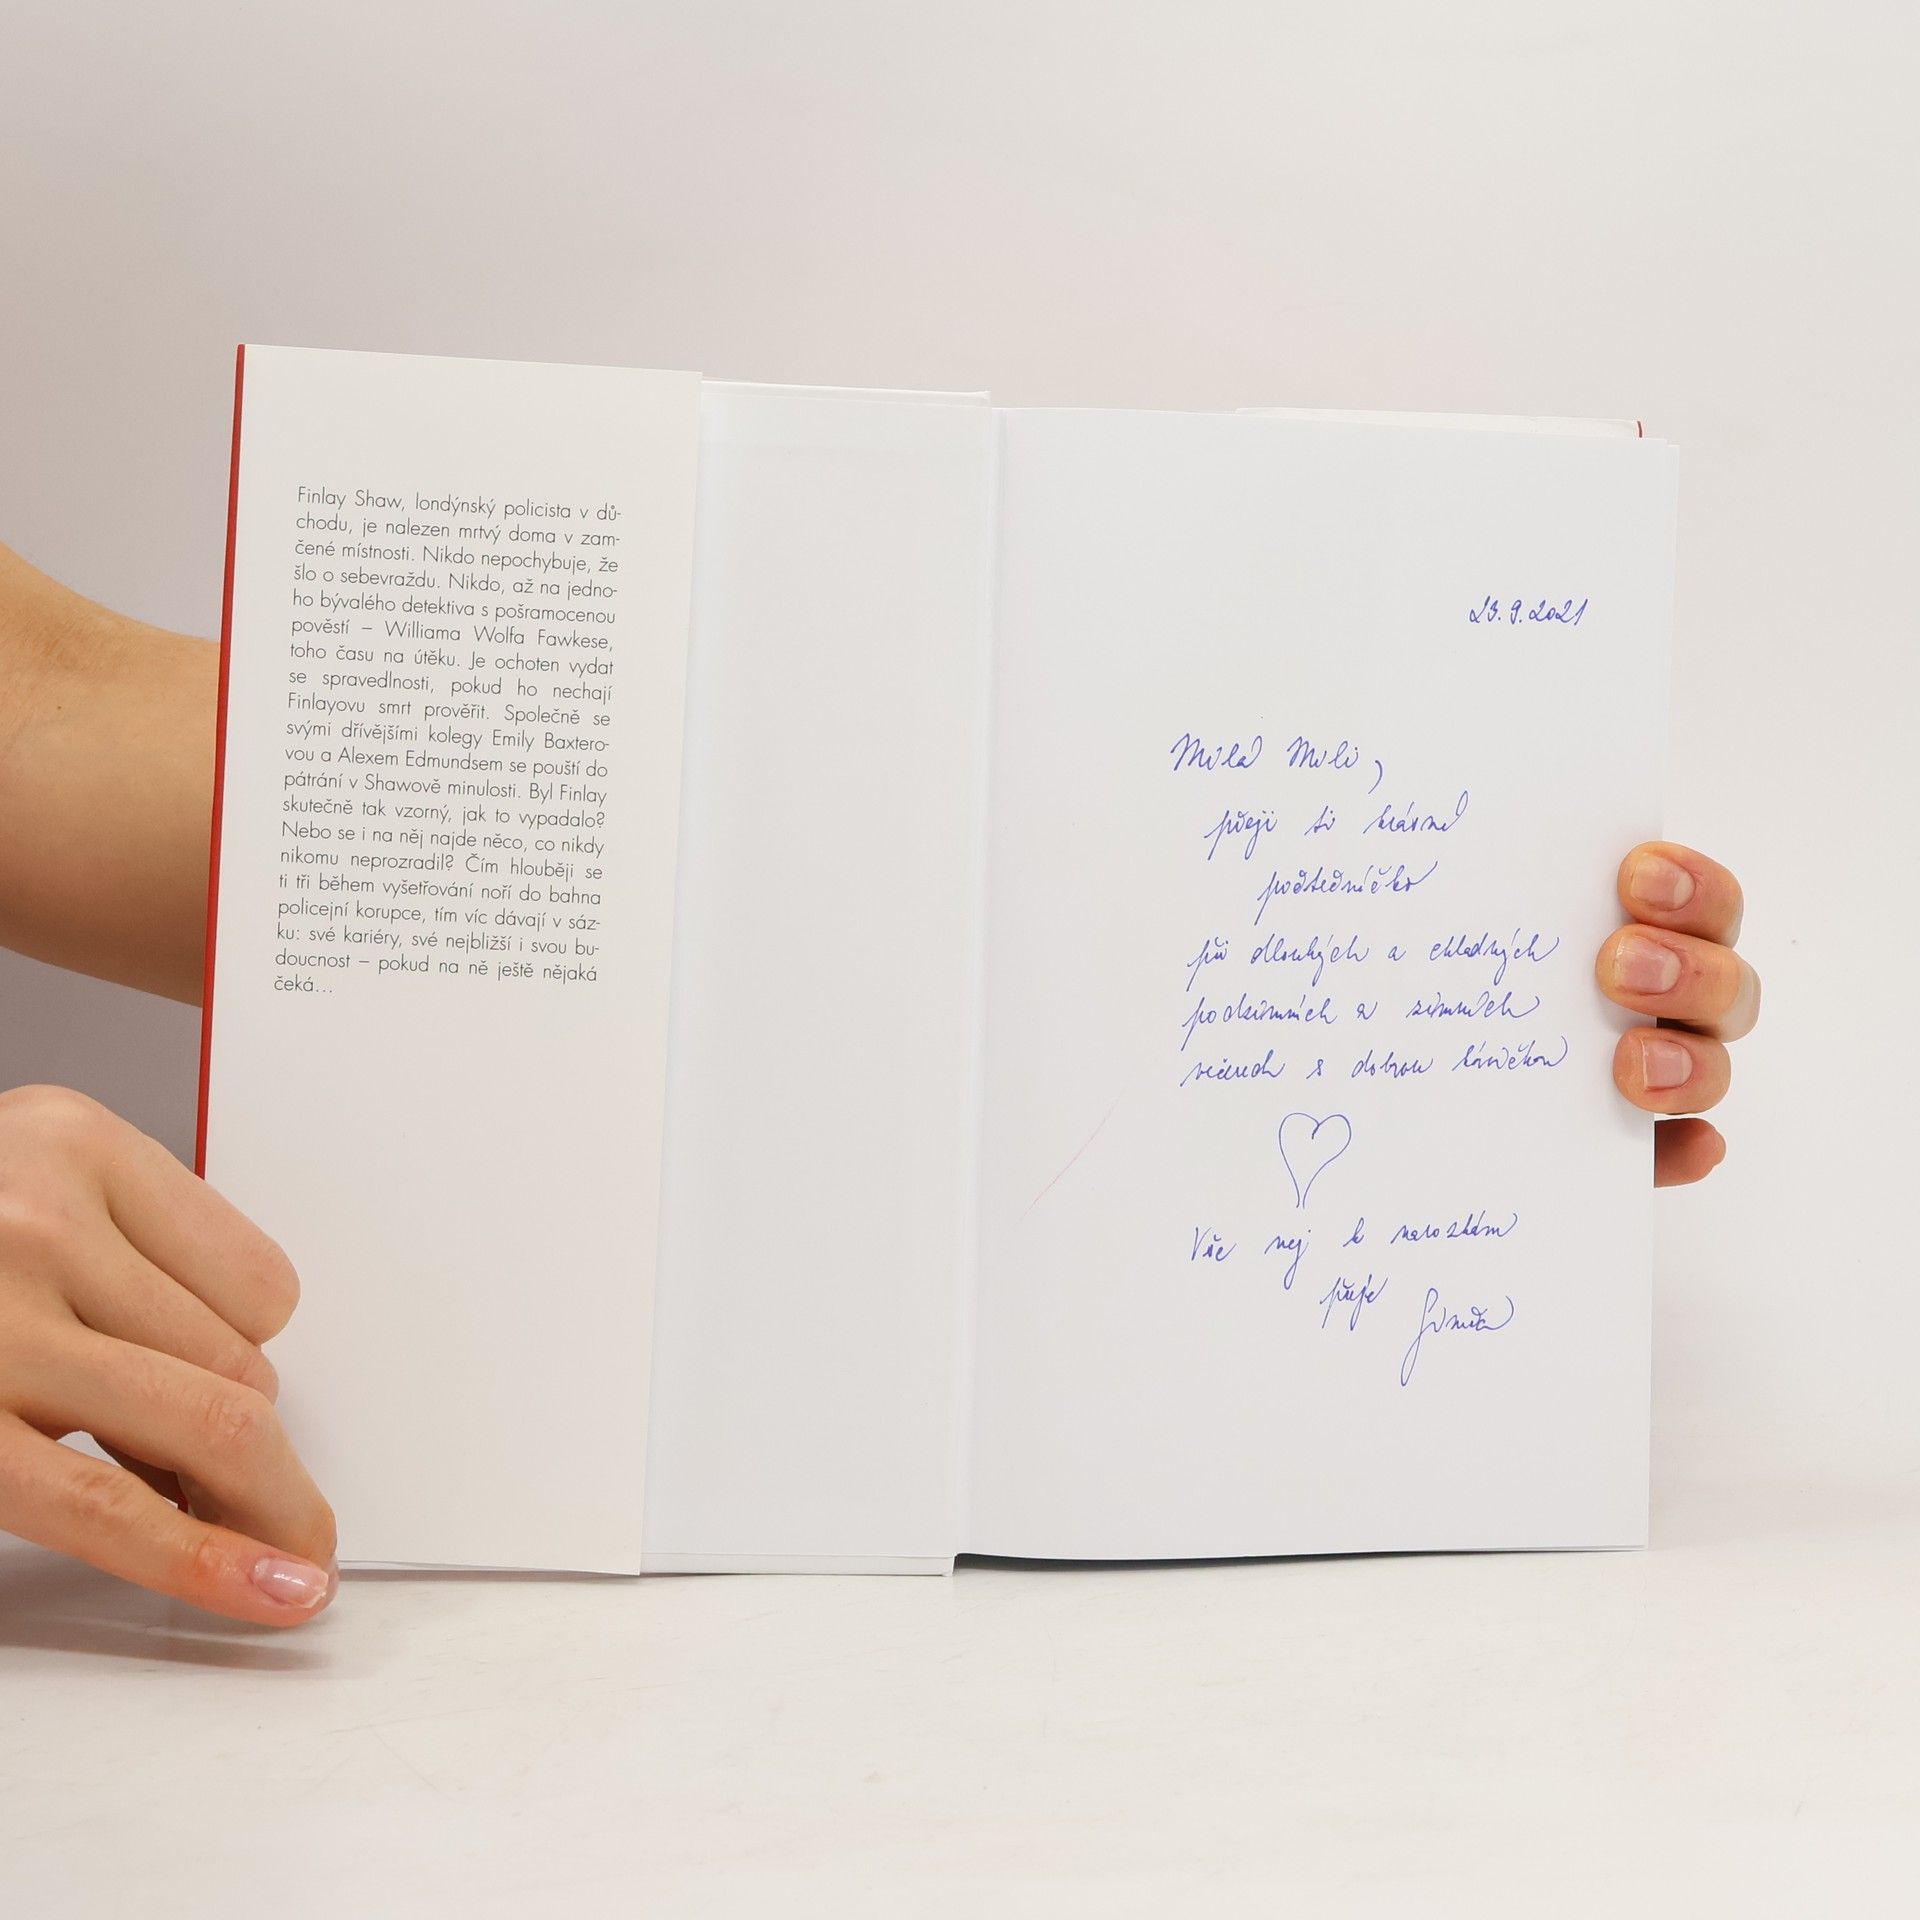 Finlay Shaw, londýnský policista v dů-
chodu, je nalezen mrtvý doma v zam-
čené místnosti. Nikdo nepochybuje, že
šlo o sebevraždu. Nikdo, až na jedno-
ho bývalého detektiva s pošramocenou
pověstí – Williama Wolfa Fawkese,
toho času na útěku. Je ochoten vydat
se spravedlnosti, pokud ho nechají
Finlayovu smrt prověřit. Společně se
svými dřívějšími kolegy Emily Baxtero-
vou a Alexem Edmundsem se pouští do
pátrání v Shawově minulosti. Byl Finlay
skutečně tak vzorný, jak to vypadalo?
Nebo se i na něj najde něco, co nikdy
nikomu neprozradil? Čím hlouběji se
ti tři během vyšetřování noří do bahna
policejní korupce, tím víc dávají v sáz-
ku: své kariéry, své nejbližší i svou bu-
doucnost – pokud na ně ještě nějaká
čeká...
23.9.2021
Milá Mili,
přeji ti krásné
počteníčko
při dlouhých a chladných
podzimních a zimních
večerech s dobrou kávičkou
Vše nej k narozkám
přeje